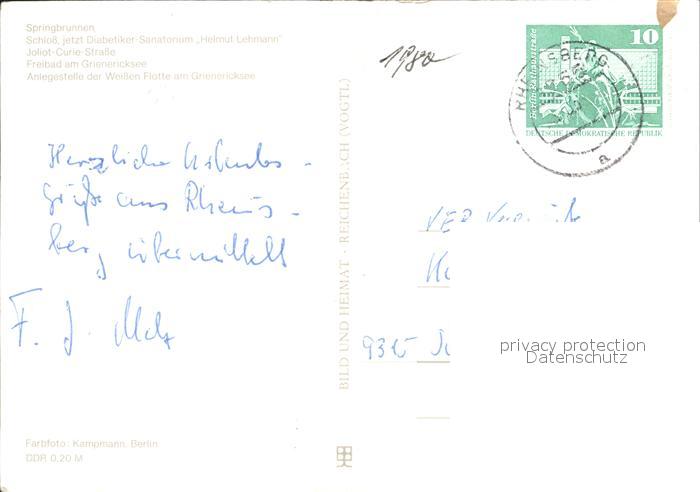 Springbrunnen
Schloß, jetzt Diabetiker-Sanatorium „Helmut Lehmann"
Joliot-Curie-Straße
Freibad am Grienericksee
Anlegestelle der Weißen Flotte am Grienericksee
1980
10
Berlin, Rathausstraße
DEUTSCHE DEMOKRATISCHE REPUBLIK
RHEINSBERG
a
Herzliche Urlaubs-
grüße aus Rheins-
berg übermittelt
F. J. Metz
BILD UND HEIMAT · REICHENBACH (VOGTL)
VEB
9315
privacy protection
Datenschutz
Farbfoto: Kampmann, Berlin
DDR 0,20 M